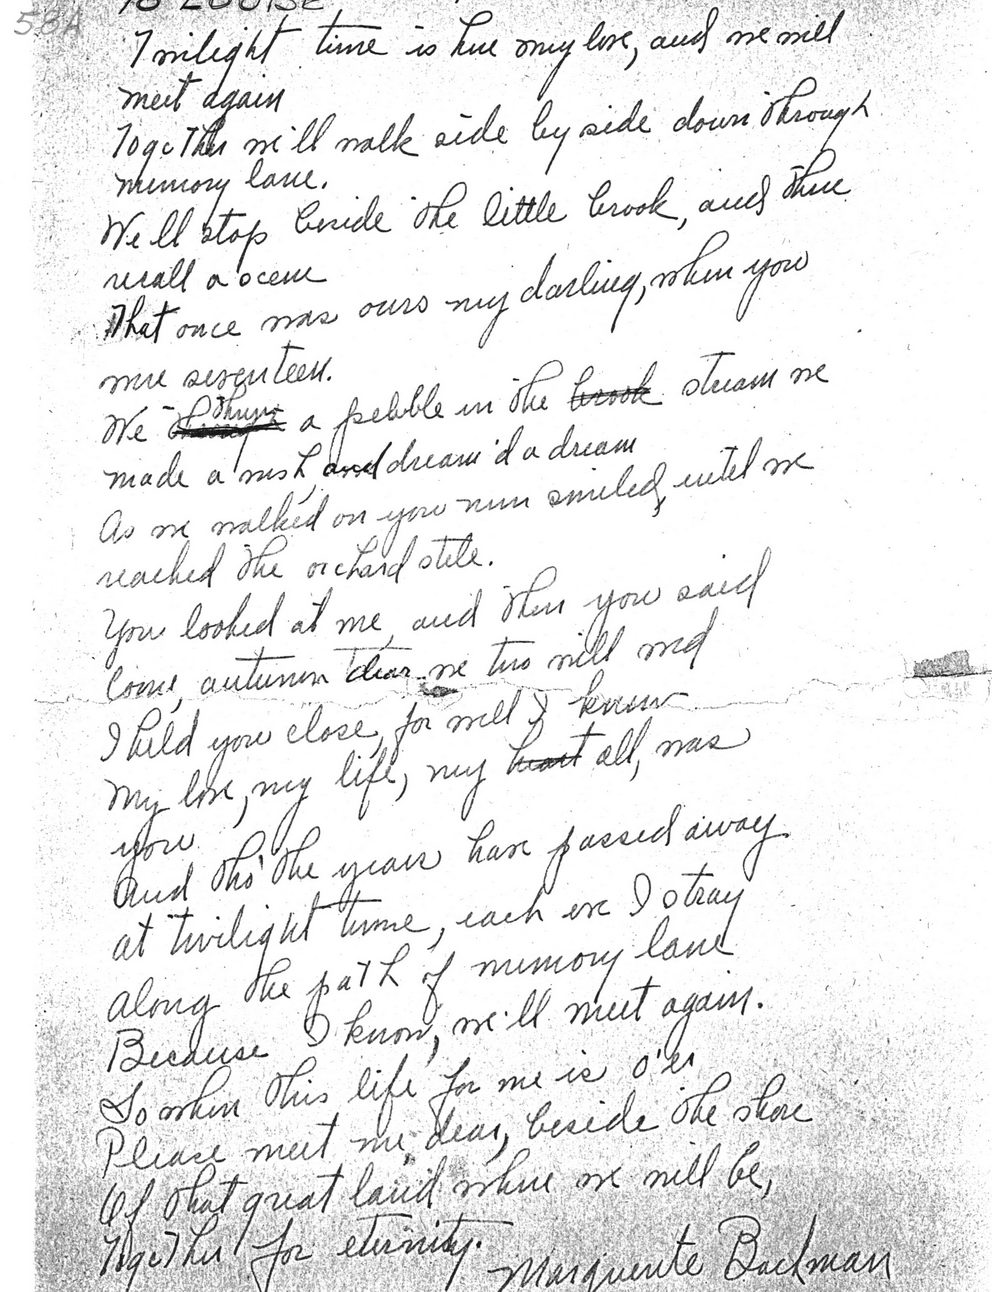 58A
TO LOUISE
Twilight time is here my love, and we will
meet again
Together we'll walk side by side down through
memory lane.
We'll stop beside the little brook, and there
recall a scene
That once was ours my darling, when you
were seventeen.
We threw a pebble in the brook stream we
made a wish, and dream'd a dream
As we walked on your mm smiled, until we
reached the orchard stile.
You looked at me, and then you said
Come, autumn dear we two will wed
I held you close, for well I know
My love, my life, my heart all, was
you
And tho' the years have passed away
at twilight time, each eve I stray
along the path of memory lane
Because I know, we'll meet again.
So when this life for me is o'er
Please meet me, dear, beside the shore
Of that great land where we will be,
Together for eternity.
Marguerite Backman